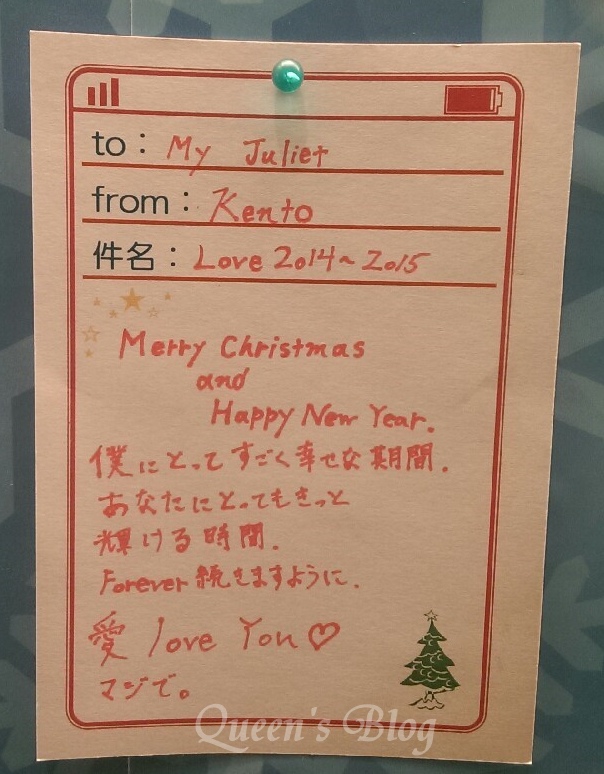 to： My Juliet
from： Kento
件名： Love 2014~2015
Merry Christmas
and
Happy New Year.
僕にとってすごく幸せな期間.
あなたにとってもきっと
輝ける時間.
Forever 続きますように.
愛 love You♡
マジで。
Queen's Blog